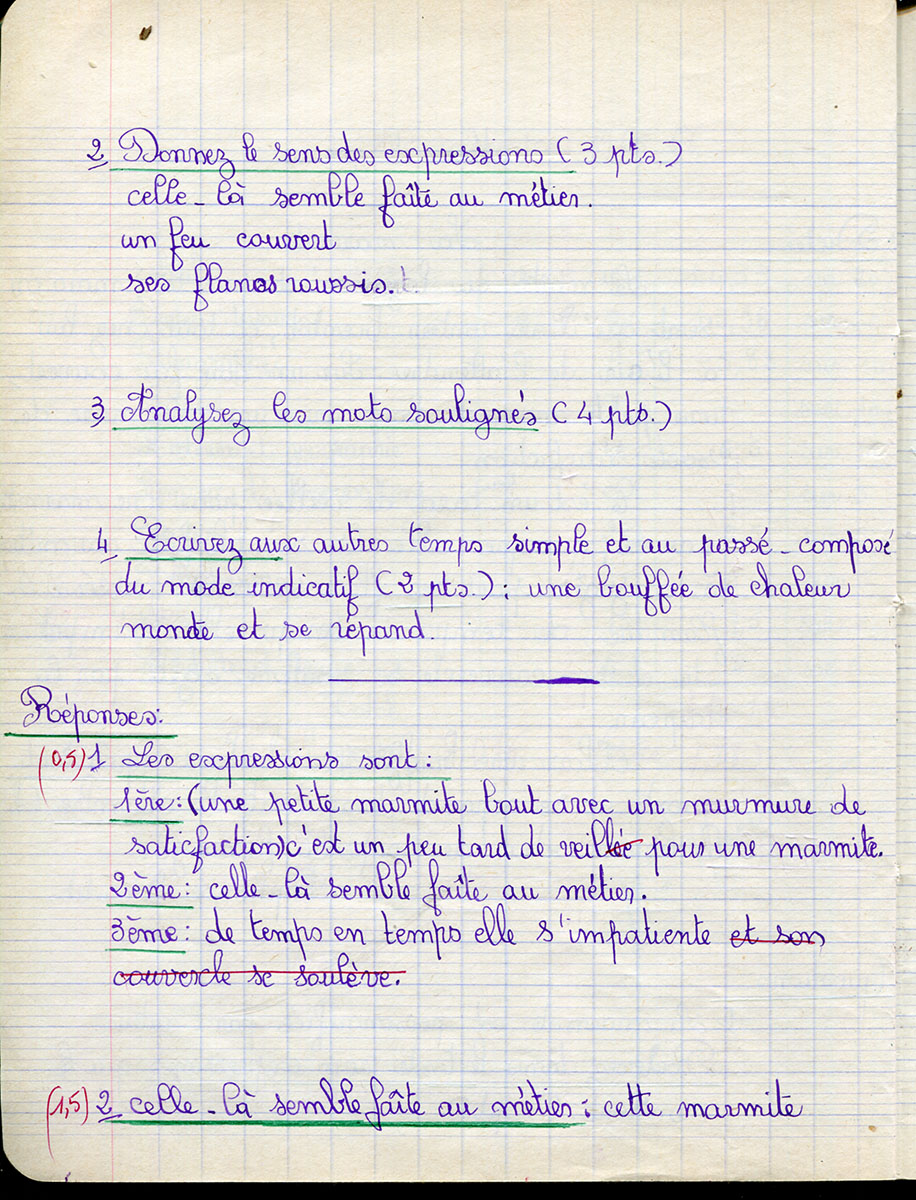 2 Donnez le sens des expressions (3 pts.)
celle-là semble faîte au métier.
un feu couvert
ses flancs roussis.
3 Analysez les mots soulignés (4 pts.)
4 Ecrivez aux autres temps simple et au passé-composé
du mode indicatif (2 pts.): une bouffée de chaleur
monde et se répand.
Réponses:
(0,5) 1 Les expressions sont:
1ère: (une petite marmite bout avec un murmure de
saticfaction) c'est un peu tard de veillée pour une marmite.
2ème: celle-là semble faîte au métier.
3ème: de temps en temps elle s'impatiente et son
couvercle se soulève.
(1,5) 2 celle-là semble faîte au métier: cette marmite